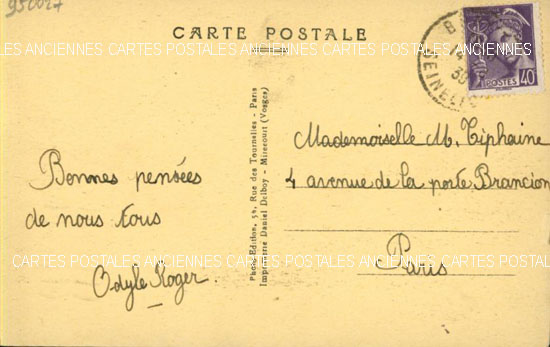 950027
CARTE POSTALE
CARTES POSTALES ANCIENNES CARTES POSTALES ANCIENNES CARTES POSTALES ANCIENNES
POSTES 40
Mademoiselle M. Tiphaine
4 avenue de la porte Brancion
Paris
Bonnes pensées
de nous tous
Odyle Roger.
Photo-Edition, 54, Rue des Tournelles - Paris
Imprimerie Daniel Delboy - Mirecourt (Vosges)
CARTES POSTALES ANCIENNES CARTES POSTALES ANCIENNES CARTES POSTALES ANCIENNES